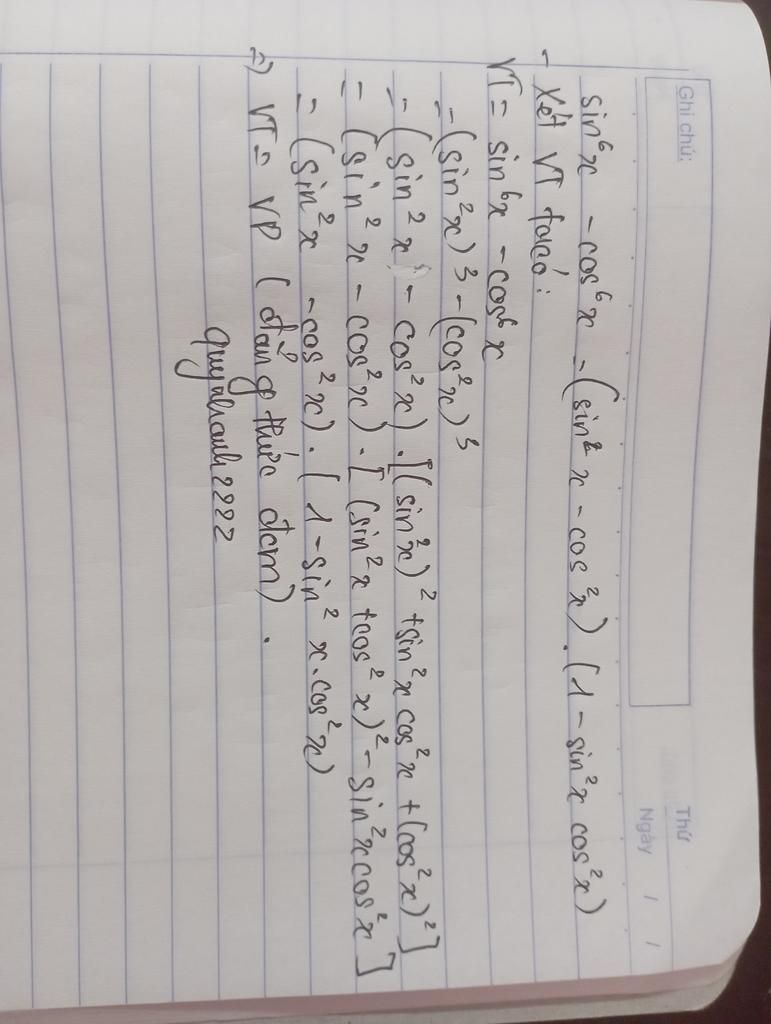 Ghi chú:
Thứ
Ngày / /
sin⁶x - cos⁶x = (sin²x - cos²x). (1 - sin²x cos²x)
- Xét VT ta có:
VT = sin⁶x - cos⁶x
= (sin²x)³ - (cos²x)³
= (sin²x - cos²x). [(sin²x)² + sin²x cos²x + (cos²x)²]
= (sin²x - cos²x). [(sin²x + cos²x)² - sin²x cos²x]
= (sin²x - cos²x). (1 - sin²x. cos²x)
=) VT = VP (đẳng thức đcm).